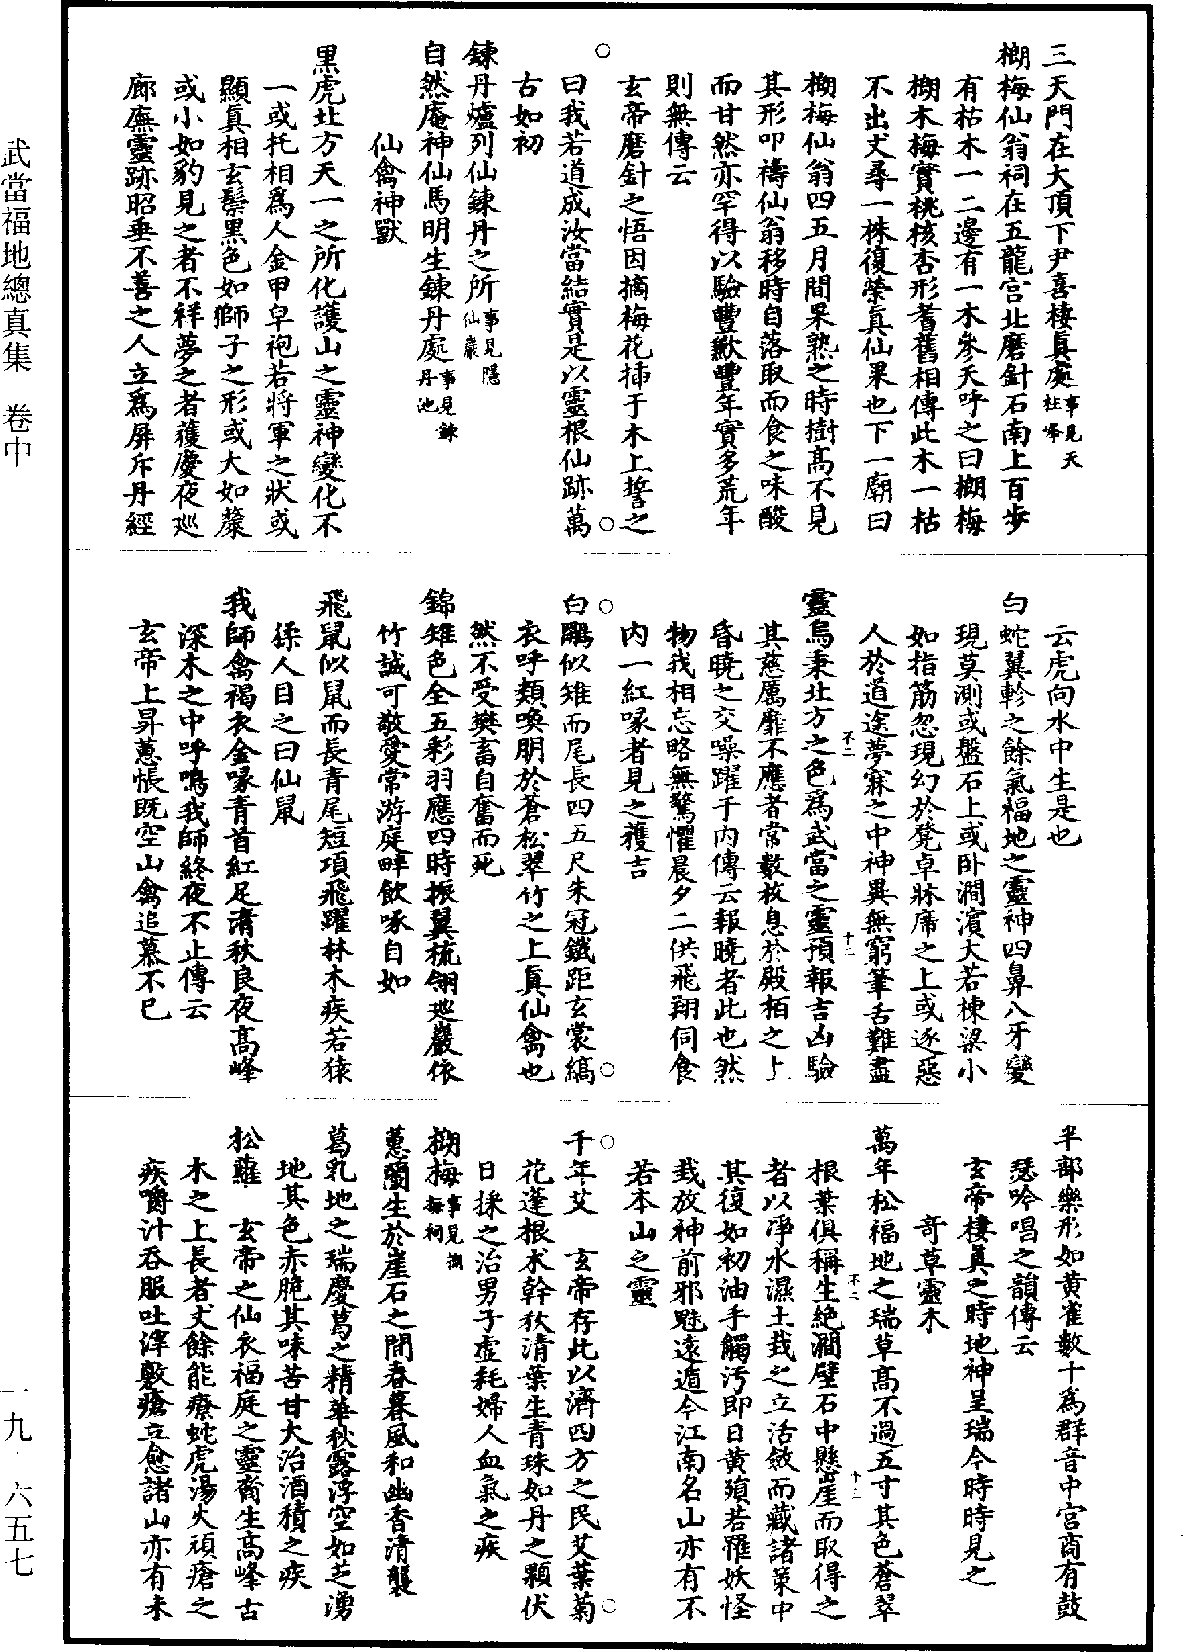 武當福地總真集 卷中
三天門在大頂下尹喜棲真處事見天柱峰
榔梅仙翁祠在五龍宫北磨針石南上百步
有枯木一二邊有一木參天呼之曰榔梅
榔木梅實桃核杏形耆舊相傳此木一枯
不出丈尋一株復榮真仙果也下一廟曰
榔梅仙翁四五月間果熟之時樹高不見
其形叩禱仙翁移時自落取而食之味酸
而甘然亦罕得以驗豐歉豐年實多荒年
則無傳云
玄帝磨針之悟因摘梅花插于木上誓之
曰我若道成汝當結實是以靈根仙跡萬
古如初
鍊丹爐列仙鍊丹之所事見隱仙巖
自然庵神仙馬明生鍊丹處事見鍊丹池
仙禽神獸
黑虎北方天一之所化護山之靈神變化不
一或托相爲人金甲皁袍若將軍之狀或
顯真相玄鬃黑色如獅子之形或大如麋
或小如豹見之者不祥夢之者獲慶夜巡
廊廡靈跡昭垂不善之人立爲屏斥丹經
云虎向水中生是也
白蛇翼軫之餘氣福地之靈神四鼻八牙變
現莫測或盤石上或卧澗濱大若棟梁小
如指筋忽現幻於凳卓牀席之上或逐惡
人於道途夢寐之中神異無窮筆舌難盡
靈烏秉北方之色爲武當之靈預報吉凶驗
其慈厲靡不應者常數枚息於殿栢之上
昏曉之交噪躍于内傳云報曉者此也然
物我相忘略無驚懼晨夕二供飛翔伺食
内一紅喙者見之獲吉
白鷳似雉而尾長四五尺朱冠鐵距玄裳縞
衣呼類喚朋於蒼松翠竹之上真仙禽也
然不受樊畜自奮而死
錦雉色全五彩羽應四時振翼梳翎廵巖依
竹誠可敬愛常游庭畔飲啄自如
飛鼠似鼠而長青尾短項飛躍林木疾若猿
猱人目之曰仙鼠
我師禽褐衣金喙青首紅足清秋良夜高峰
深木之中呼鳴我師終夜不止傳云
玄帝上昇蕙帳既空山禽追慕不已
半部樂形如黄雀數十爲群音中宫商有鼓
瑟吟唱之韻傳云
玄帝棲真之時地神呈瑞今時時見之
奇草靈木
萬年松福地之瑞草高不過五寸其色蒼翠
根葉俱稱生絶澗壁石中懸崖而取得之
者以凈水濕土栽之立活斂而藏諸策中
其復如初油手觸污即日黄殞若罹妖怪
栽放神前邪魅遠遁今江南名山亦有不
若本山之靈
千年艾 玄帝存此以濟四方之民艾葉菊
花蓬根朮幹秋清葉生青珠如丹之顆伏
日採之治男子虚耗婦人血氣之疾
榔梅事見榔梅祠
蕙蘭生於崖石之間春暮風和幽香清襲
葛乳地之瑞慶葛之精華秋露浮空如芝湧
地其色赤脆其味苦甘大治酒積之疾
松蘿 玄帝之仙衣福庭之靈裔生高峰古
木之上長者丈餘能療蛇虎湯火頑瘡之
疾嚼汁吞服吐滓敷瘡立愈諸山亦有未
一九·六五七